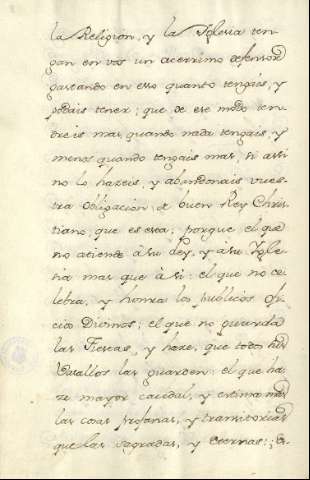 la Religion, y la Iglesia ten-
gan en vos un acerrimo defensor
gastando en esso quanto tengais, y
podais tener; que de ese modo ten-
dreis mas, quando nada tengais, y
menos quando tengais mas, si assi
no lo hazeis, y abandonais vues-
tra obligacion de buen Rey Chris-
tiano, que es esta; porque el que
no atiende à su Ley, y à su Igle-
sia mas que à si: el que no ce-
lebra, y honra los publicos ofi-
cios Divinos; el que no guarda
las Fiestas, y haze, que todos sus
Vasallos las guarden: el que ha-
ze mayor caudal, y estima mas
las cosas profanas, y transitorias
que las sagradas, y eternas;